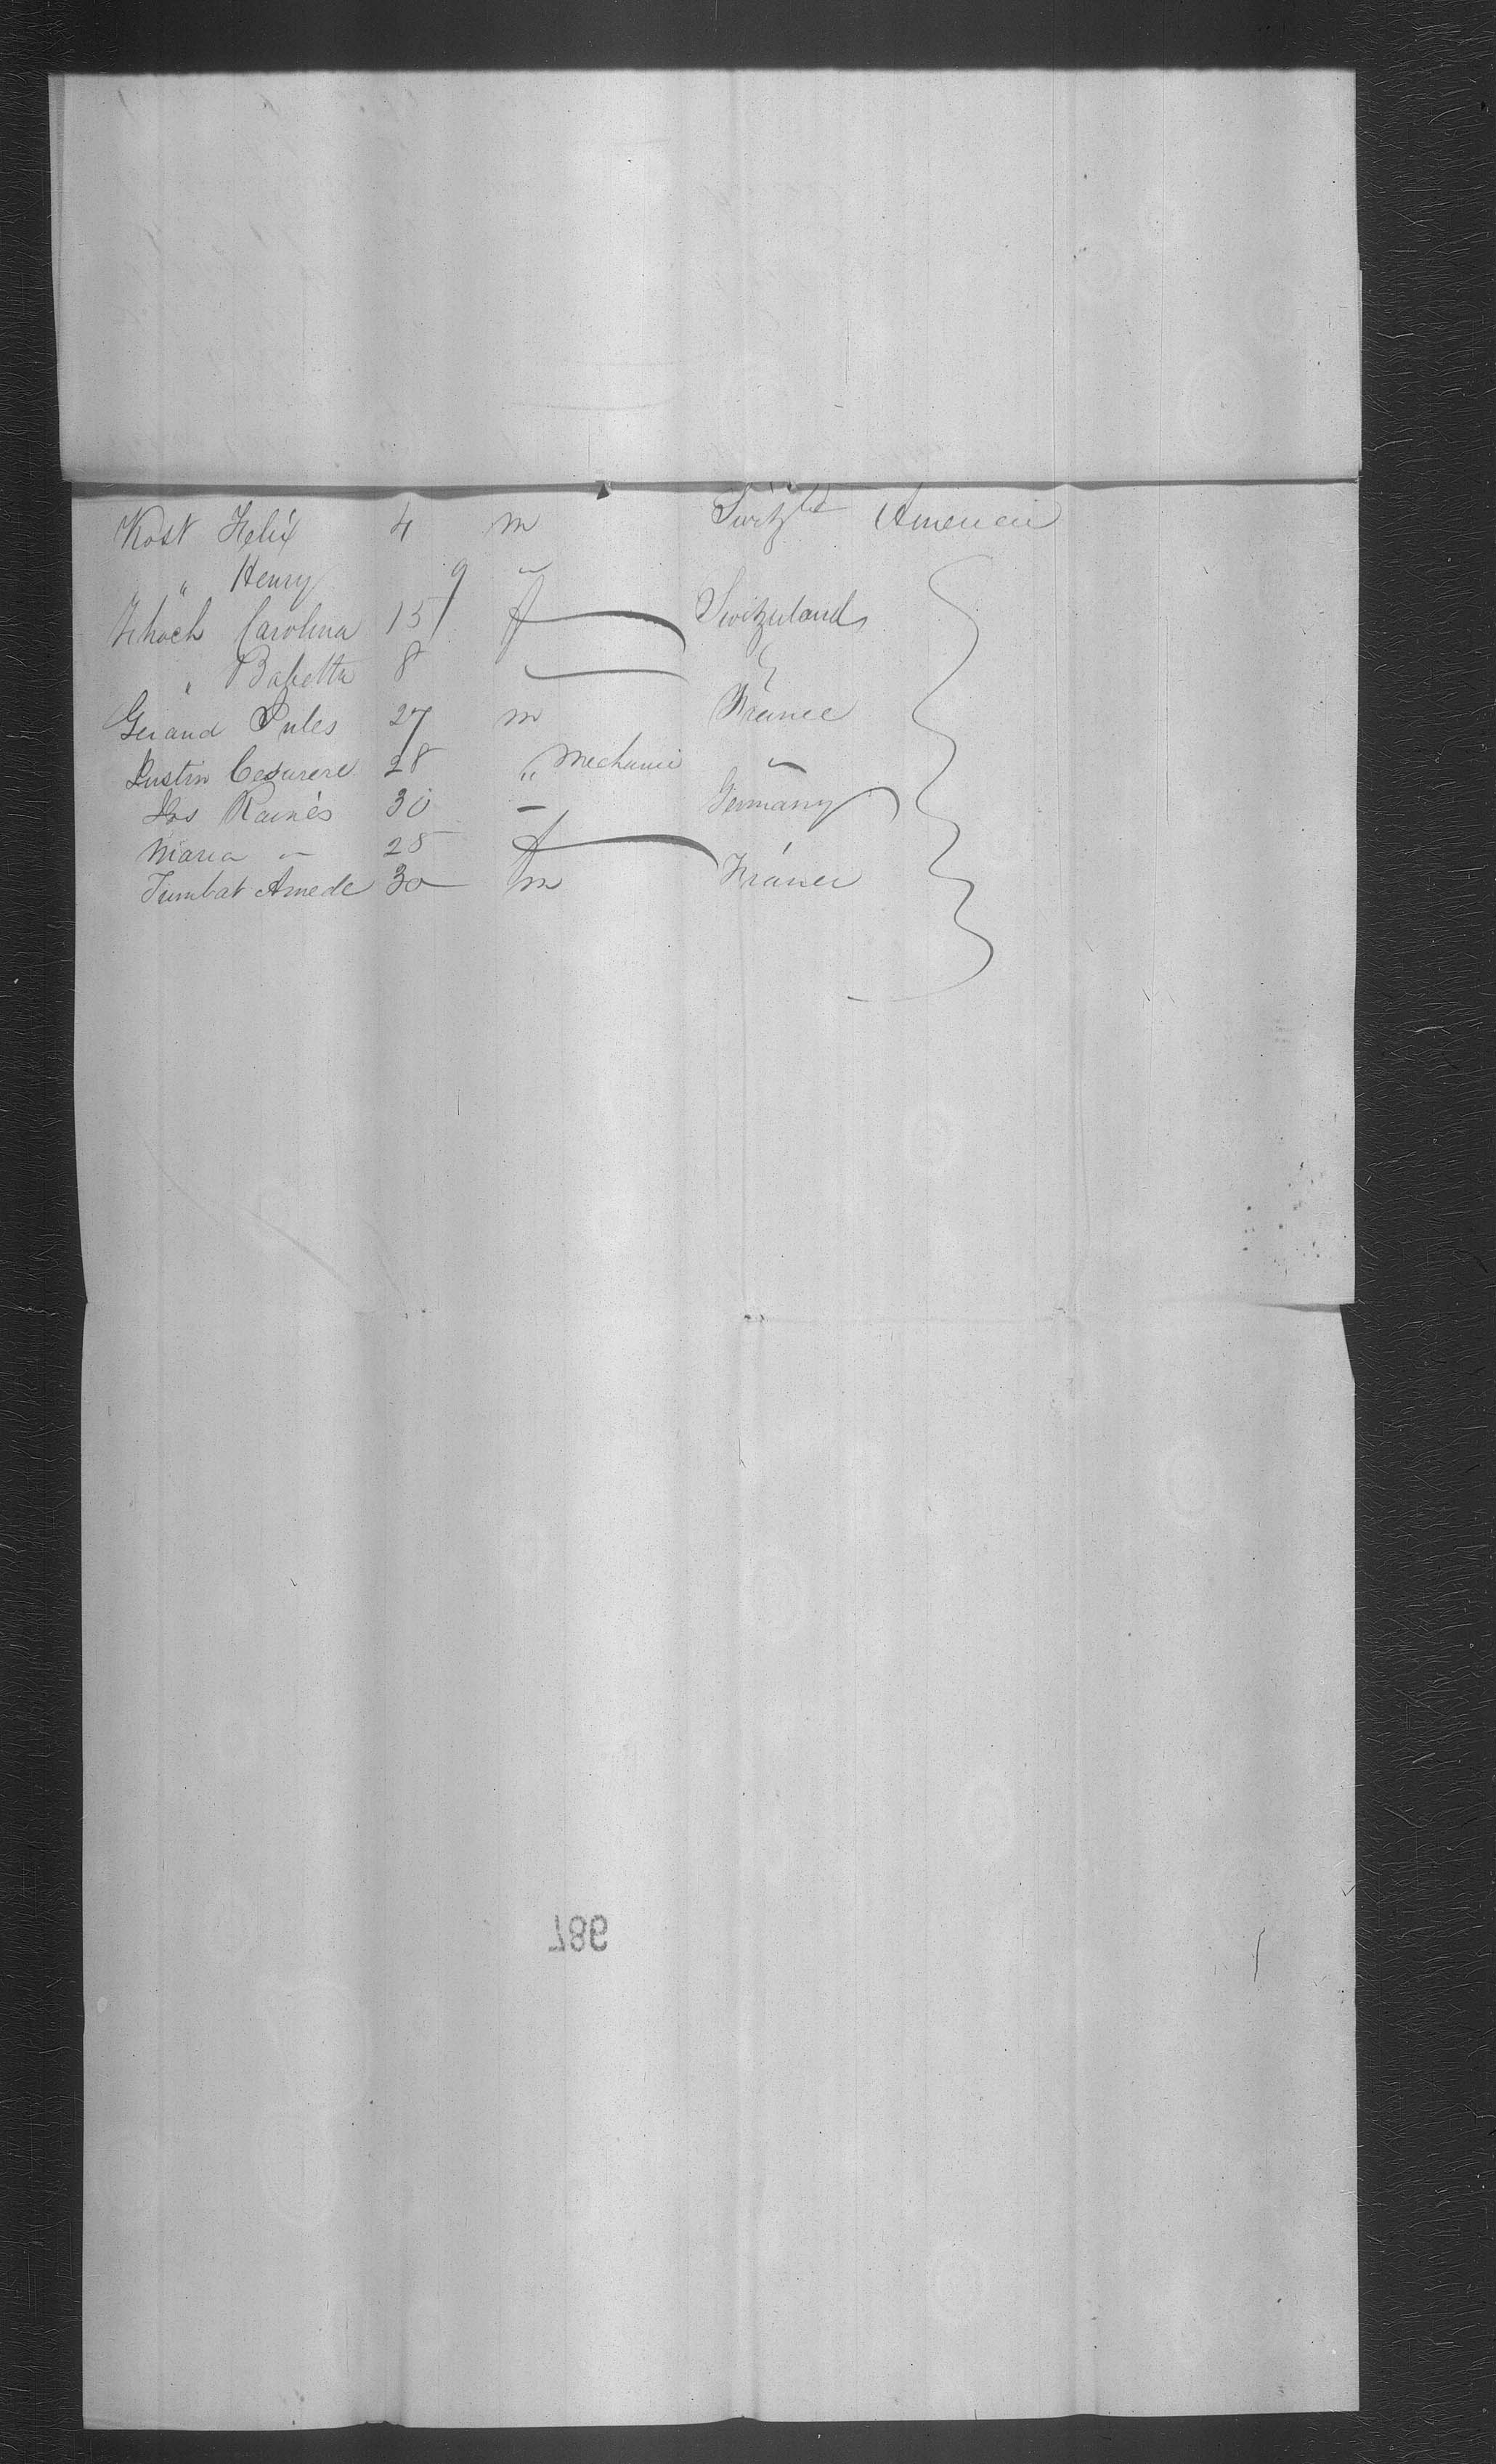 Kost Felix 4 m Switzld America
" Henry 9 "
Schoch Carolina 15 f Switzerland
" Babetta 8
Gerand Jules 27 m France
Justin 28 " Mechanic "
Jos 30 Germany
Maria " 25 f
Amede 30 m France
987